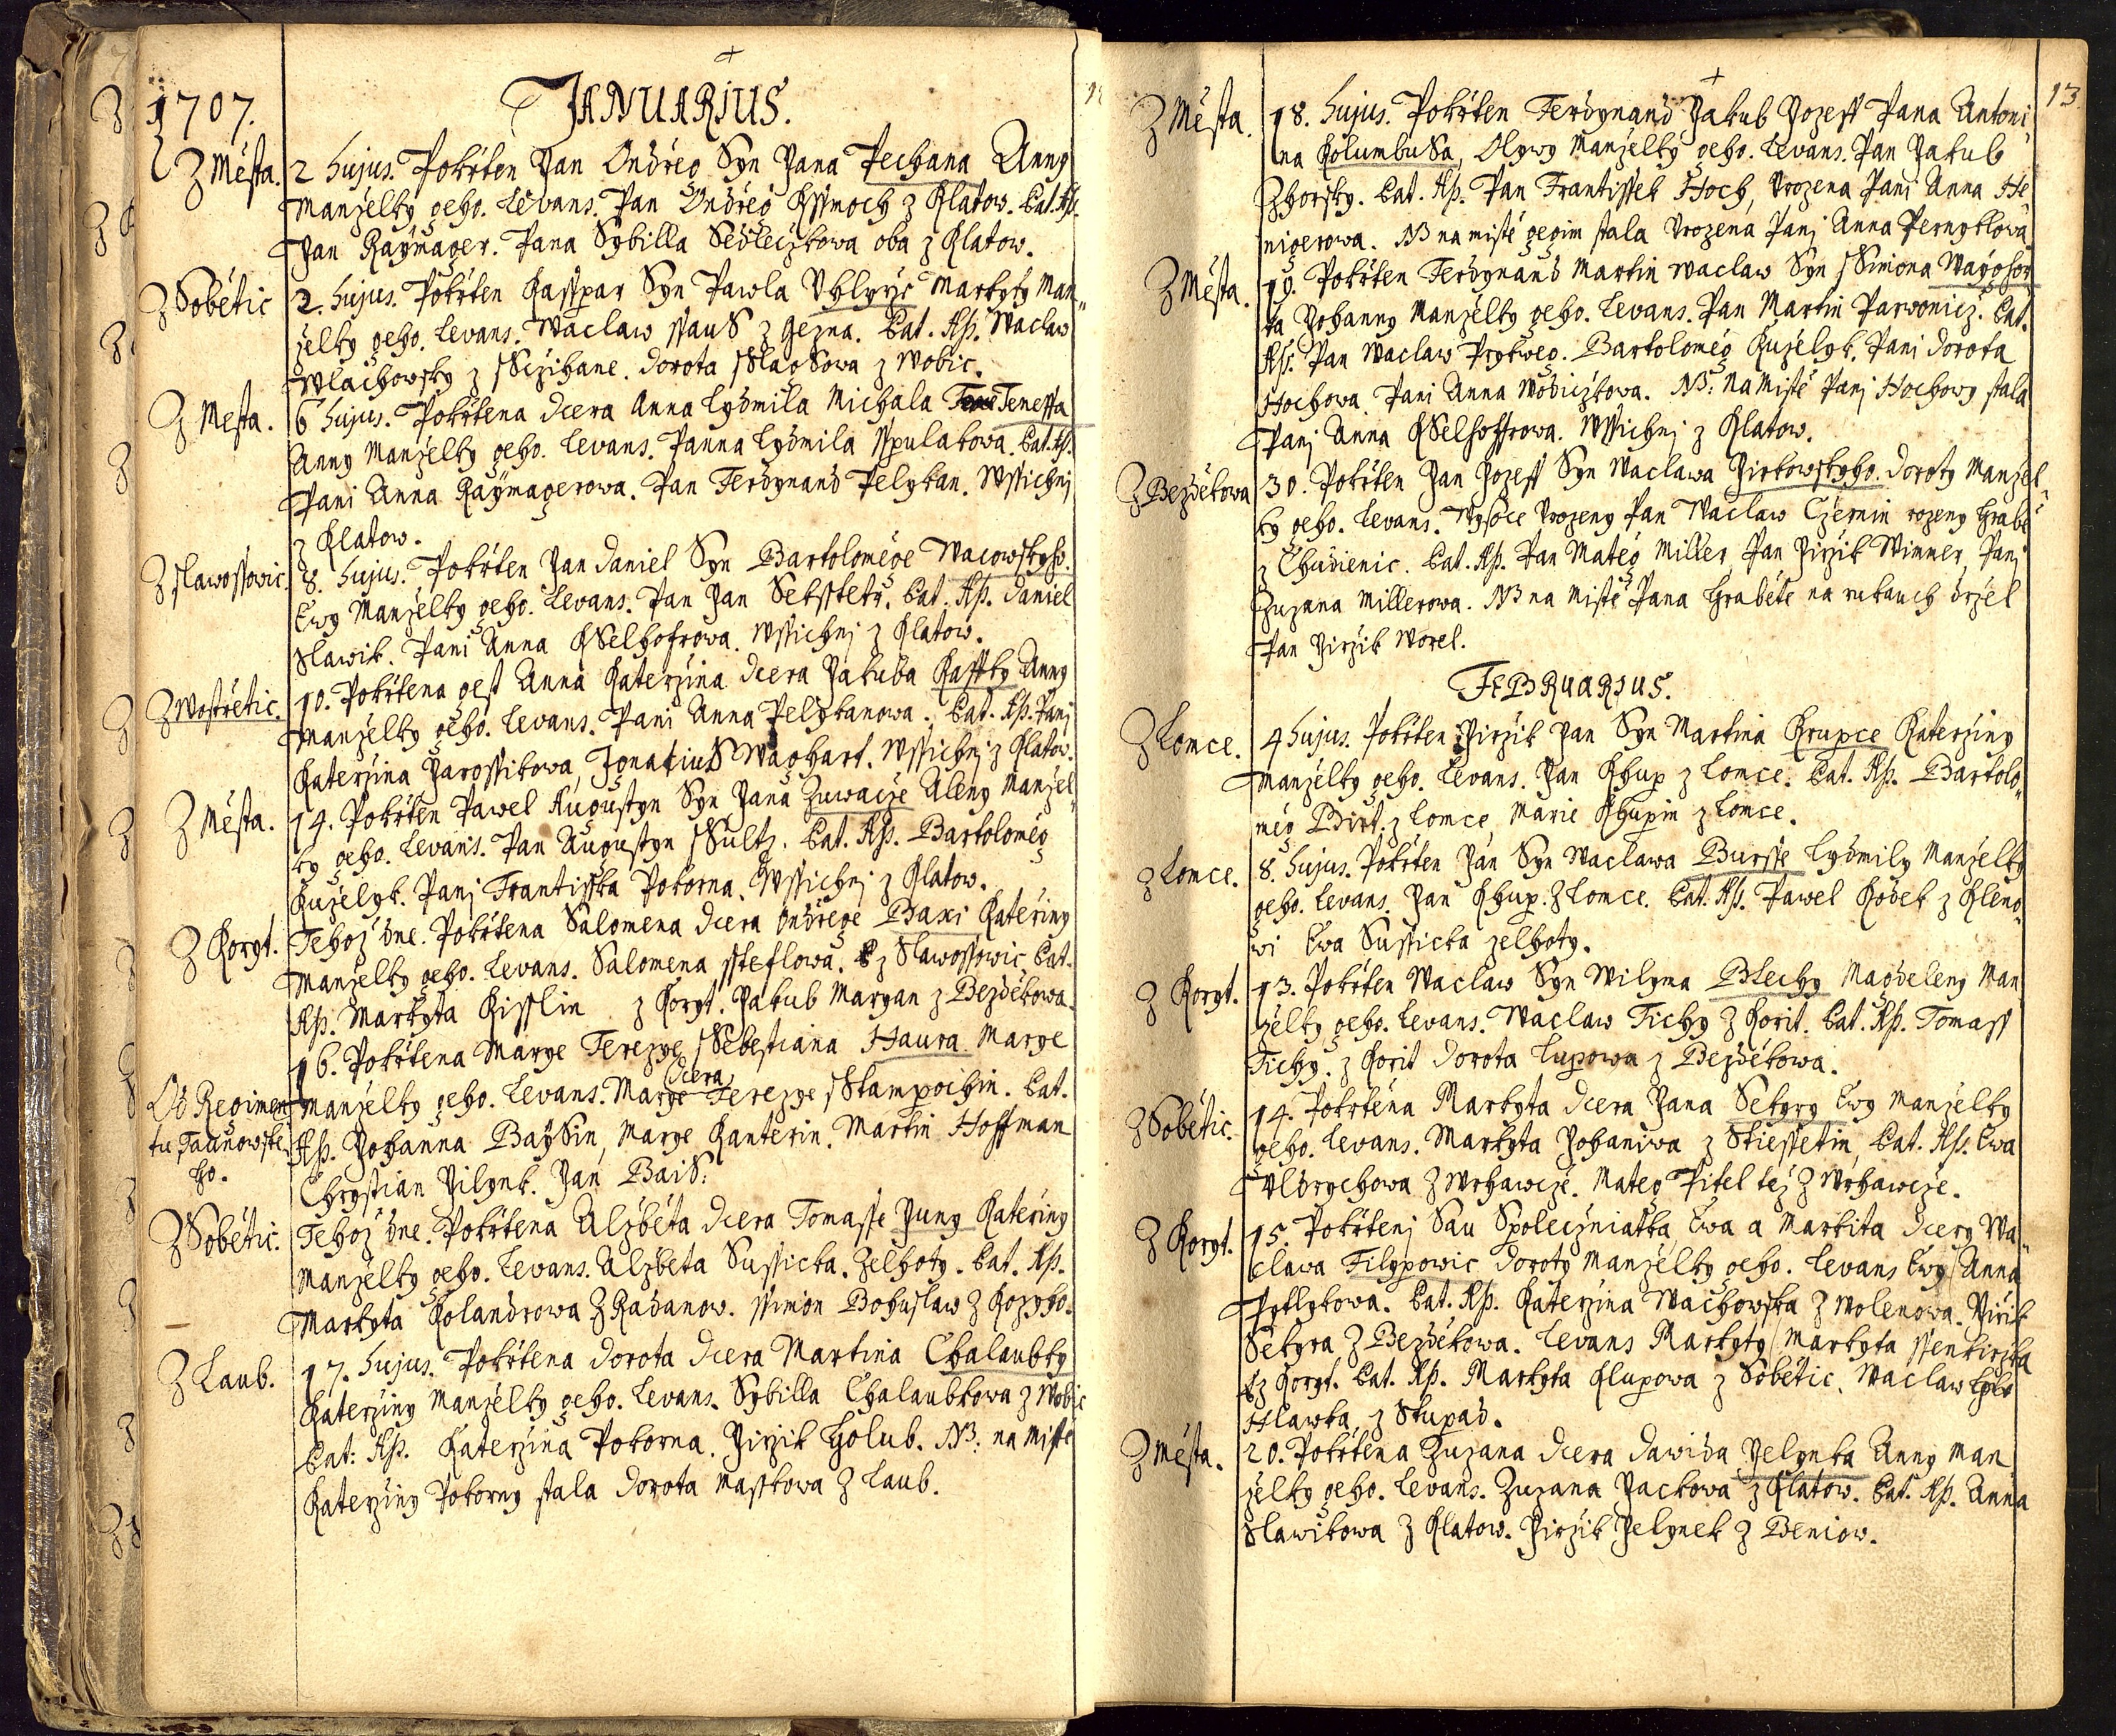 1707.
JANUARIUS.
Z Města.
2 hujus. Pokřten Jan Ondřeg Syn Jana Pechana Anny
Manželky geho. Levans. Pan Ondřeg Kssmoch z Klatow. Cat. Ap.
Jan Raymager. Pana Sybilla Sedleczkowa oba z Klatow.
Z Sobětic
2. hujus. Pokřten Kasspar Syn Pawla Uhlyrže Markyty Man
želky geho. Levans. Waclaw ssauS z Gezna. Cat. Ap. Waclaw
Wlachowsky z Sczihane. Dorota SlagSowa z Wobic.
Z Města.
6 hujus. Pokřtena Dcera Anna Lydmila Michala Tenessa
Anny Manželky geho. Levans. Panna Lydmila Sspulakowa. Cat. Ap.
Pani Anna Raymagerowa. Pan Ferdynand Pelykan. Wssichnj
z Klatow.
Z Slawossowic.
8. hujus. Pokřten Jan Daniel Syn Bartoloměge Wacowskyho.
Ewy Manželky geho. Levans. Pan Jan Sekstetr. Cat. Ap. Daniel
Slawik. Pani Anna KSelhofrowa. Wssichnj z Klatow.
Z Wostřetic.
10. Pokřtena gest Anna Kateržina Dcera Jakuba Kasstky Anny
Manželky geho. Levans. Pani Anna Pelykanowa. Cat. Ap. Panj
Kateržina Jarossikowa, IgnatiuS Waghart. Wssichnj z Klatow.
Z Města.
14. Pokřten Pawel Augustyn Syn Jana Zuwacže Aleny Manžel
ky geho. Levans. Pan Augustyn SSultz. Cat. Ap. Bartoloměg
Kuželyk. Panj Frantisska Pokorna. Wssichnj z Klatow.
Z Koryt.
Tehož dne. Pokřtena Salomena Dcera Ondřege Baxi Kateřiny
Manželky geho. Levans. Salomena ssteflowa. z Slawossowic. Cat.
Ap. Markyta Kisslin z Koryt. Jakub Maryan z Bezděkowa.
Od Regimen
tu Taunowske
ho.
16. Pokřtena Marye Terezye SSebestiana Haura Marye
Dcera
Manželky geho. Levans. Marye Terezye SStampochin. Cat.
Ap. Johanna BaySin, Marye Kanterin. Martin Hoffman
Chrystian Pilynk. Jan BaiS.
Z Sobětic.
Tehož dne. Pokřtena Alžběta Dcera Tomasse Juny Kateřiny
Manželky geho. Levans. Alžběta Sussicka. Zelhoty. Cat. Ap.
Markyta Kolandrowa Z Radanow. Ssimon Bohuslaw Z Kozyho.
Z Laub.
17. hujus. Pokřtena Dorota Dcera Martina Chalaubky
Kateržiny Manželky geho. Levans. Sybilla Chalaubkowa z Wobic
Cat: Ap. Kateržina Pokorna. Jiržik Holub. NB: na Mistě
Kateržiny Pokorny stala Dorota Masskowa Z Laub.
13
Z Města.
18. hujus. Pokřten Ferdynand Jakub Jozeff Pana Antoni
na KolumbuSa, Olywy Manželky geho. Levans. Pan Jakub
Zhorsky. Cat. Ap. Pan Frantissek Hoch, Urozena Pani Anna He
nigerowa. NB na mistě gegim stala Urozena Panj Anna Pernyklowa
Z Města.
19. Pokřten Ferdynand Martin Waclaw Syn SSimona Waghor
ta Johanny Manželky geho. Levans. Pan Martin Parwonicz. Cat.
Ap. Pan Waclaw Prykweg. Bartoloměg Kuželyk. Pani Dorota
Hochowa. Pani Anna Wodiczkowa. NB: Na Mistě Panj Hochowy stala
Panj Anna KSelhoffrowa. Wssichnj z Klatow.
Z Bezděkowa
30. Pokřten Jan Jozeff Syn Waclawa Jirkowskyho. Doroty Manžel
ky geho. Levans. Wysoce Urozeny Pan Waclaw Czernin rozeny Hrabě
z Chudienic. Cat. Ap. Pan Matěg Miller, Pan Jiržik Wimmer, Panj
Zuzana Millerowa. NB na Mistě Pana Hraběte na rukauch držel
Pan Jiržik Worel.
FEBRUARIUS.
Z Lomce.
4 hujus. Pokřten Jiržik Jan Syn Martina Krupce Kateržiny
Manželky geho. Levans. Jan Khup z Lomce. Cat. Ap. Bartolo
měg Birt. z Lomce, Marie Khupin z Lomce.
z Lomce.
8. hujus. Pokřten Jan Syn Waclawa Bursse Lydmily Manželky
geho. Levans. Jan Khup. Z Lomce. Cat. Ap. Pawel Kodek z Kleno
wi Ewa Sussicka zelhoty.
Z Koryt.
13. Pokřten Waclaw Syn Wilyma Blechy Magdeleny Man
želky geho. Levans. Waclaw Tichy Z Korit. Cat. Ap. Tomass
Tichy. z Korit Dorota Lupowa z Bezděkowa.
Z Sobětic.
14. Pokřtena Markyta Dcera Jana Sekyry Ewy Manželky
geho. Levans. Markyta Johaniwa z Stiessetin, Cat. Ap. Ewa
Uldrychowa Z Wrhawcže. Mateg Pitel též Z Wrhawcže.
Z Koryt.
15. Pokřtenj Sau Společzniatka Ewa a Markita Dcery Wa
clawa Filypowic Doroty Manželky geho. Levans Ewy Anna
Pytlykowa. Cat. Ap. Kateržina Wachowska Z Wolenowa. Jiřik
Sekyra Z Bezděkowa. Levans Markyty Markyta ssenkiržka
z Koryt. Cat. Ap. Markyta Klupowa z Sobětic. Waclaw
Hlawka z Stupad.
Z Města.
20. Pokřtena Zuzana Dcera Dawida Jelynka Anny Man
želky geho. Levans. Zuzana Jackowa z Klatow. Cat. Ap. Anna
Slawikowa Z Klatow. Jiržik Jelynek Z Beniow.